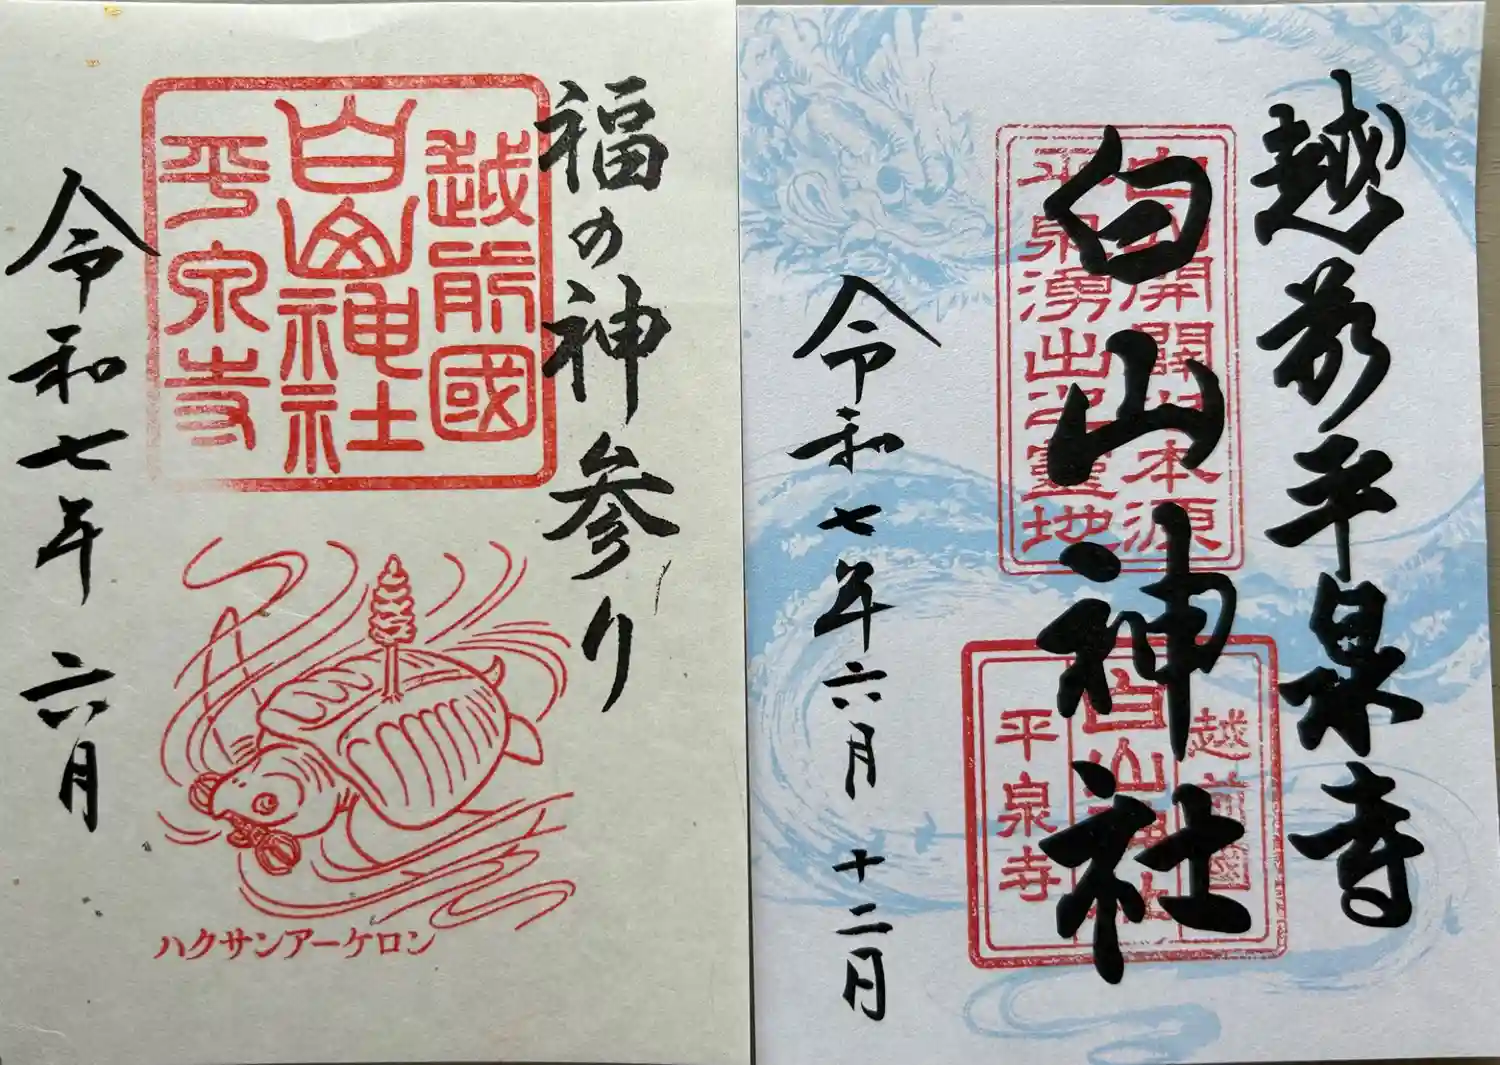 福の神参り
越前國
白山神社
平泉寺
令和七年六月
ハクサンアーケロン
越前平泉寺
白山神社
白山開闢之本源
平泉湧出之霊地
越前國
白山神社
平泉寺
令和七年六月十二月